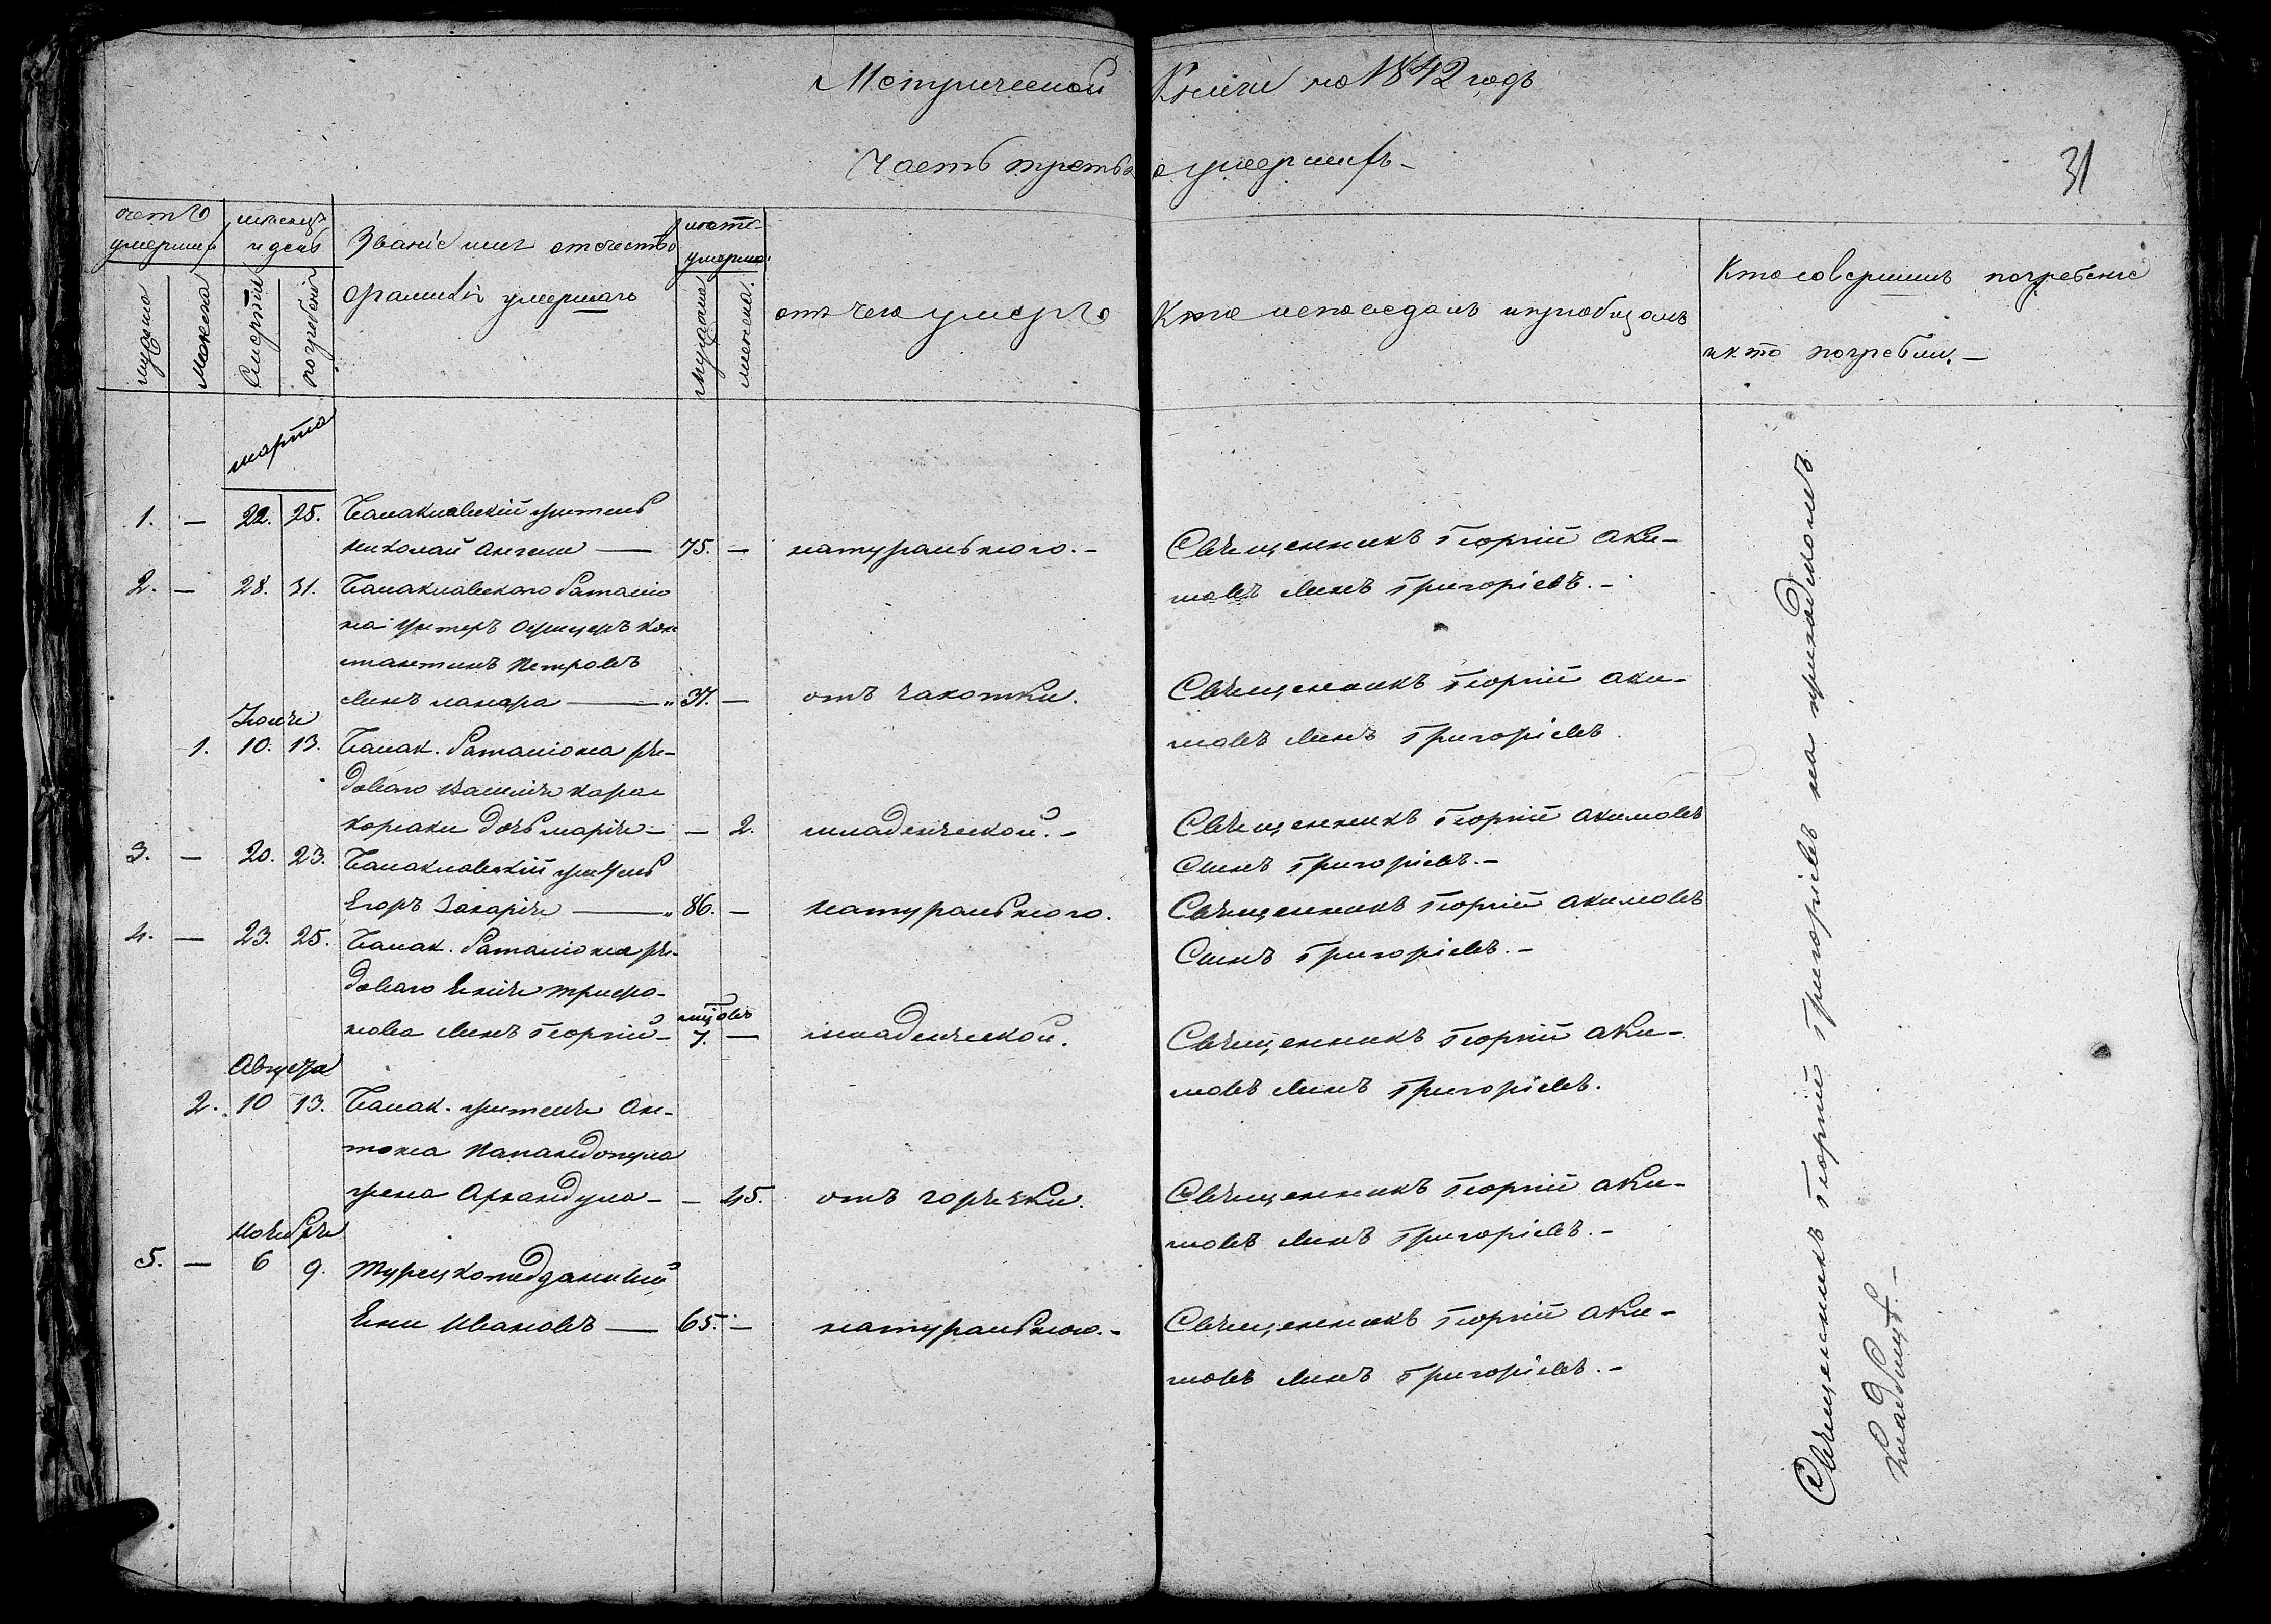 Метрической Книги на 1842 годъ
Часть третья о умершихъ
31
счетъ умершихъ
мѣсяцъ и день
Званіе имя отечество фамилія умершаго
лѣта умерша.
отъ чего умеръ
Кто исповедалъ и пріобщалъ
Кто совершилъ погребеніе
и кто погребли.
мужеска
женска
Смерти
погребенія
мужеска
женска.
марта
1. — 22. 25. Балаклавскій житель
николай Ангели — 75. — натуральною. –
Священникъ Георгій Аки-
мовъ Сынъ Григоріевъ. –
2. — 28. 31. Балаклавскаго Баталіо
на унтеръ Офицеръ кон
стантинъ Петровъ
Сынъ — „ 37. — отъ чахотки.
Священникъ Георгій Аки-
мовъ Сынъ Григоріевъ.
Іюля
1. 10. 13. Балак. Баталіона ря-
доваго Василія кара
дочь марія — — 2. младенческой. –
Священникъ Георгій Акимовъ
Сынъ Григоріевъ. –
3. — 20. 23. Балаклавскій житель
Егоръ Захарія — „ 86. — натуральною.
Священникъ Георгій Акимовъ
Сынъ Григоріевъ. –
4. — 23. 25. Балак. Баталіона ря-
доваго Енія трифо-
нова Сынъ Георгій — мцовъ 7. — младенческой.
Священникъ Георгій Аки-
мовъ Сынъ Григоріевъ.
Августа
2. 10 13. Балак. жителя Ан-
тона Папандопула
жена — — 45. отъ горячки.
Священникъ Георгій Аки-
мовъ Сынъ Григоріевъ. –
ноября
5. — 6 9. Турецкоподданный
Ени Ивановъ — 65. — натуральною. –
Священникъ Георгій Аки-
мовъ Сынъ Григоріевъ. –
Священникъ Георгій Григоріевъ на приходскомъ
кладбищѣ. –